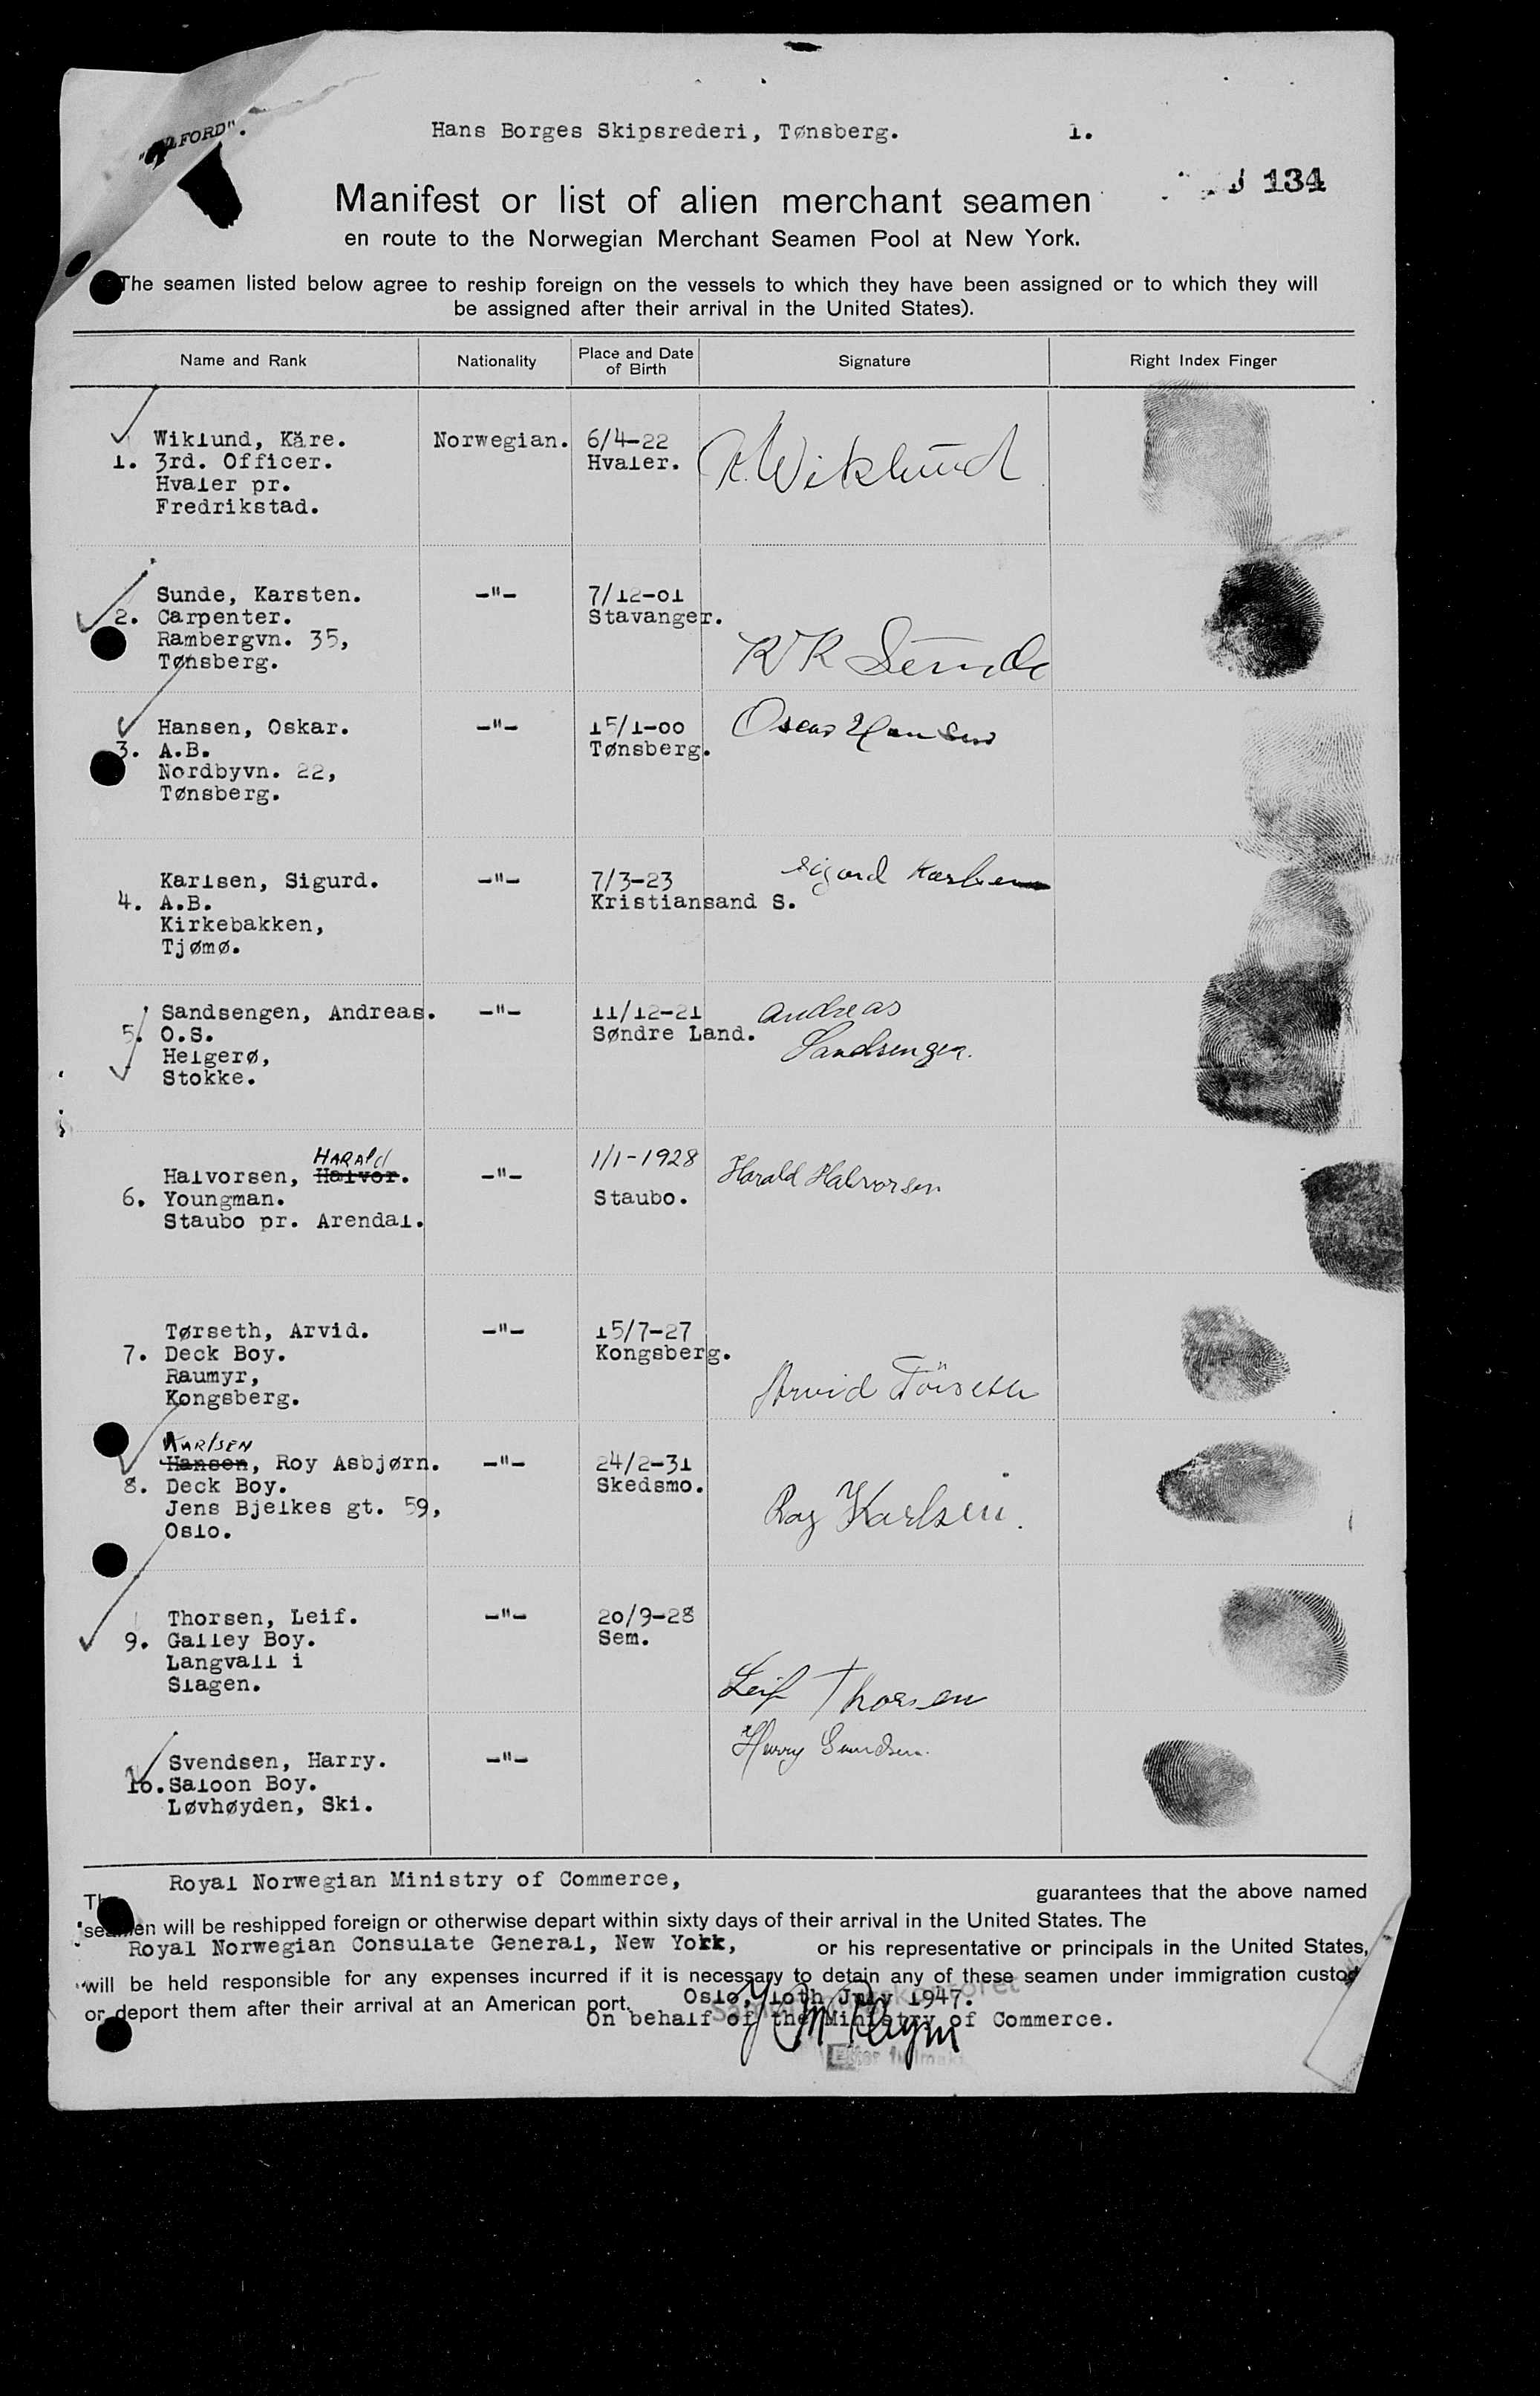 Hans Borges Skipsrederi, Tønsberg. 1.
134
Manifest or list of alien merchant seamen
en route to the Norwegian Merchant Seamen Pool at New York.
The seamen listed below agree to reship foreign on the vessels to which they have been assigned or to which they will
be assigned after their arrival in the United States).
Name and Rank Nationality Place and Date of Birth Signature Right Index Finger
Wiklund, Kåre. Norwegian. 6/4-22
1. 3rd. Officer. Hvaler. K. Wiklund
Hvaler pr.
Fredrikstad.
Sunde, Karsten. -"- 7/12-01
2. Carpenter. Stavanger.
Rambergvn. 35, K R Sunde
Tønsberg.
Hansen, Oskar. -"- 15/1-00 Oscar Hansen
3. A.B. Tønsberg.
Nordbyvn. 22,
Tønsberg.
Karlsen, Sigurd. -"- 7/3-23 Sigurd Karlsen
4. A.B. Kristiansand S.
Kirkebakken,
Tjømø.
Sandsengen, Andreas. -"- 11/12-21 Andreas
5. O.S. Søndre Land. Sandsengen.
Helgerø,
Stokke.
HARALd 1/1-1928
Halvorsen, Halvor. -"- Harald Halvorsen
6. Youngman. Staubo.
Staubo pr. Arendal.
Tørseth, Arvid. -"- 15/7-27
7. Deck Boy. Kongsberg.
Raumyr,
Kongsberg. Arvid Törseth
KARlSEN
Hansen, Roy Asbjørn. -"- 24/2-31
8. Deck Boy. Skedsmo.
Jens Bjelkes gt. 59, Roy Karlsen.
Oslo.
Thorsen, Leif. -"- 20/9-28
9. Galley Boy. Sem.
Langvall i
Slagen. Leif Thorsen
Svendsen, Harry. -"- Harry Svendsen.
10. Saloon Boy.
Løvhøyden, Ski.
Royal Norwegian Ministry of Commerce,
The guarantees that the above named
seamen will be reshipped foreign or otherwise depart within sixty days of their arrival in the United States. The
Royal Norwegian Consulate General, New York, or his representative or principals in the United States,
will be held responsible for any expenses incurred if it is necessary to detain any of these seamen under immigration custody
or deport them after their arrival at an American port. Oslo, 10th July 1947.
On behalf of the Ministry of Commerce.